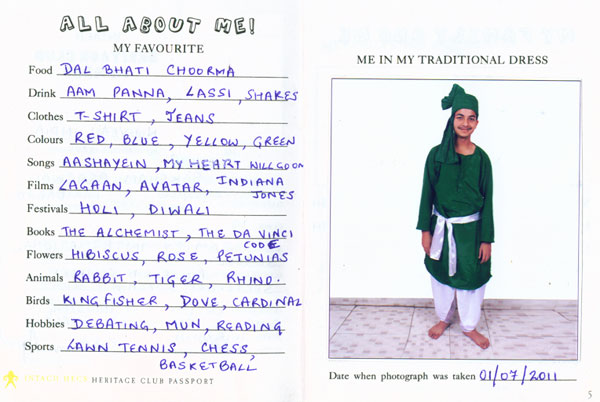 ALL ABOUT ME!
MY FAVOURITE
Food DAL BHATI CHOORMA
Drink AAM PANNA, LASSI, SHAKES
Clothes T-SHIRT, JEANS
Colours RED, BLUE, YELLOW, GREEN
Songs AASHAYEIN, MY HEART WILL GO ON
Films LAGAAN, AVATAR, INDIANA JONES
Festivals HOLI, DIWALI
Books THE ALCHEMIST, THE DA VINCI CODE
Flowers HIBISCUS, ROSE, PETUNIAS
Animals RABBIT, TIGER, RHINO.
Birds KINGFISHER, DOVE, CARDINAL
Hobbies DEBATING, MUN, READING
Sports LAWN TENNIS, CHESS, BASKETBALL
HERITAGE CLUB PASSPORT
ME IN MY TRADITIONAL DRESS
Date when photograph was taken 01/07/2011
5